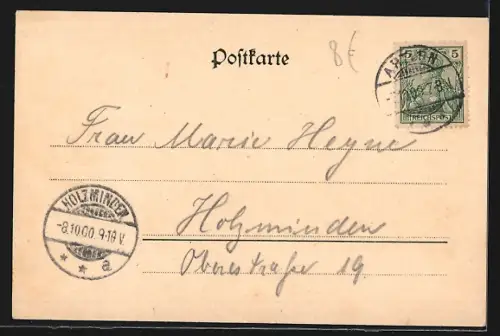 Postkarte
8€
5 5
REICHSPOST
Frau Marie Heyne
HOLZMINDEN
-8.10.00.9-10 V.
* * a
Holzminden
Oberestraße 19.